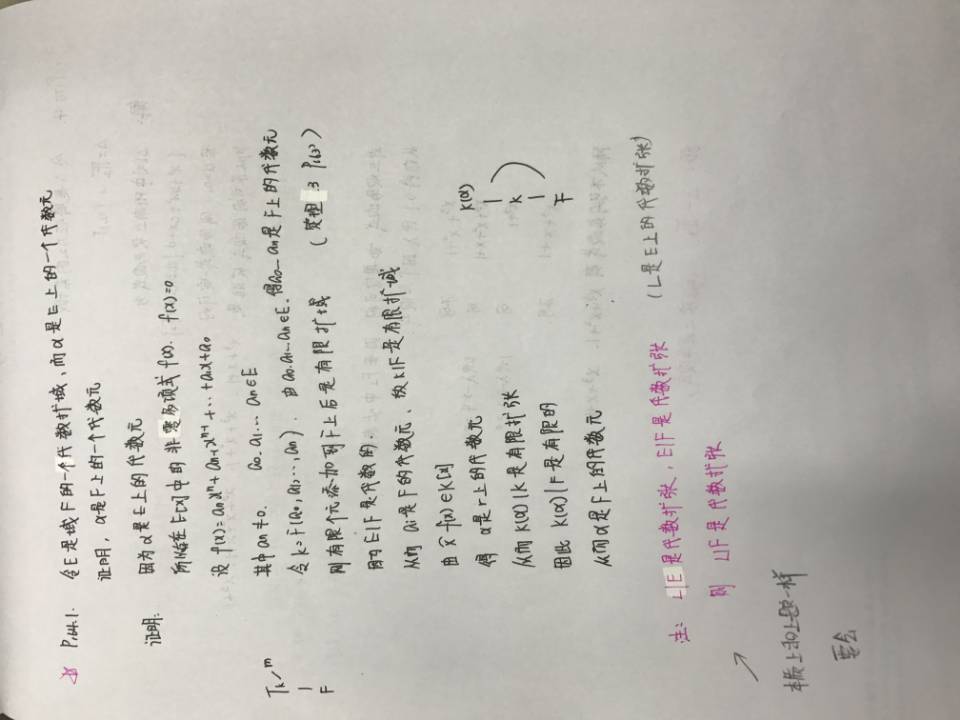 P164.1. 令E是域F的一个代数扩域,而α是E上的一个代数元
证明,α是F上的一个代数元
证明: 因为α是E上的代数元
所以在E[x]中的非零多项式f(x). f(α)=0
设 f(x)=anxⁿ+an-1xⁿ⁻¹+…+a1x+a0
其中an≠0. a0.a1…an∈E
令k=F(a0,a1,…,an). 由a0.a1…an∈E.得a0…an是F上的代数元
则有限个元添加到F上后是有限扩域 (定理 .3 P163)
因为E|F是代数的.
从而 ai是F的代数元,故k|F是有限扩域
由 f(x)∈K[x]
得 α是r上的代数元
从而 K(α)|K是有限扩张
因此 K(α)|F是有限的
从而α是F上的代数元
F
K(α)
K
F
注: L|E是代数扩张,E|F是代数扩张 (L是E上的代数扩张)
则 L|F是代数扩张
本质上和上题一样
要会